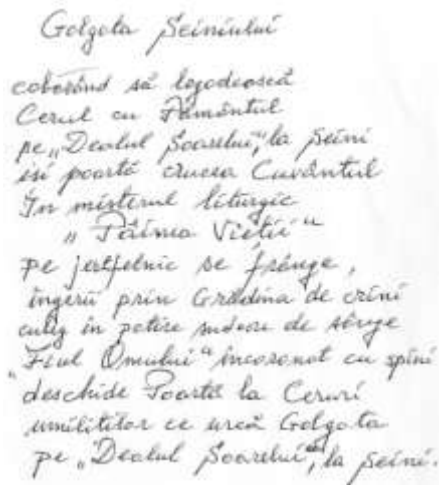 Golgota Seiniului
coborând să logodească
Cerul cu Pământul
pe „Dealul Soarelui”, la Seini
își poartă crucea Cuvântul
În misterul liturgic
„Pâinea Vieții”
pe jertfelnic se frânge,
îngerii prin Grădina de crini
culeg în potire sudori de sânge
„Fiul Omului” încoronat cu spini
deschide Poarta la Ceruri
umililor ce urcă Golgota
pe „Dealul Soarelui”, la Seini.